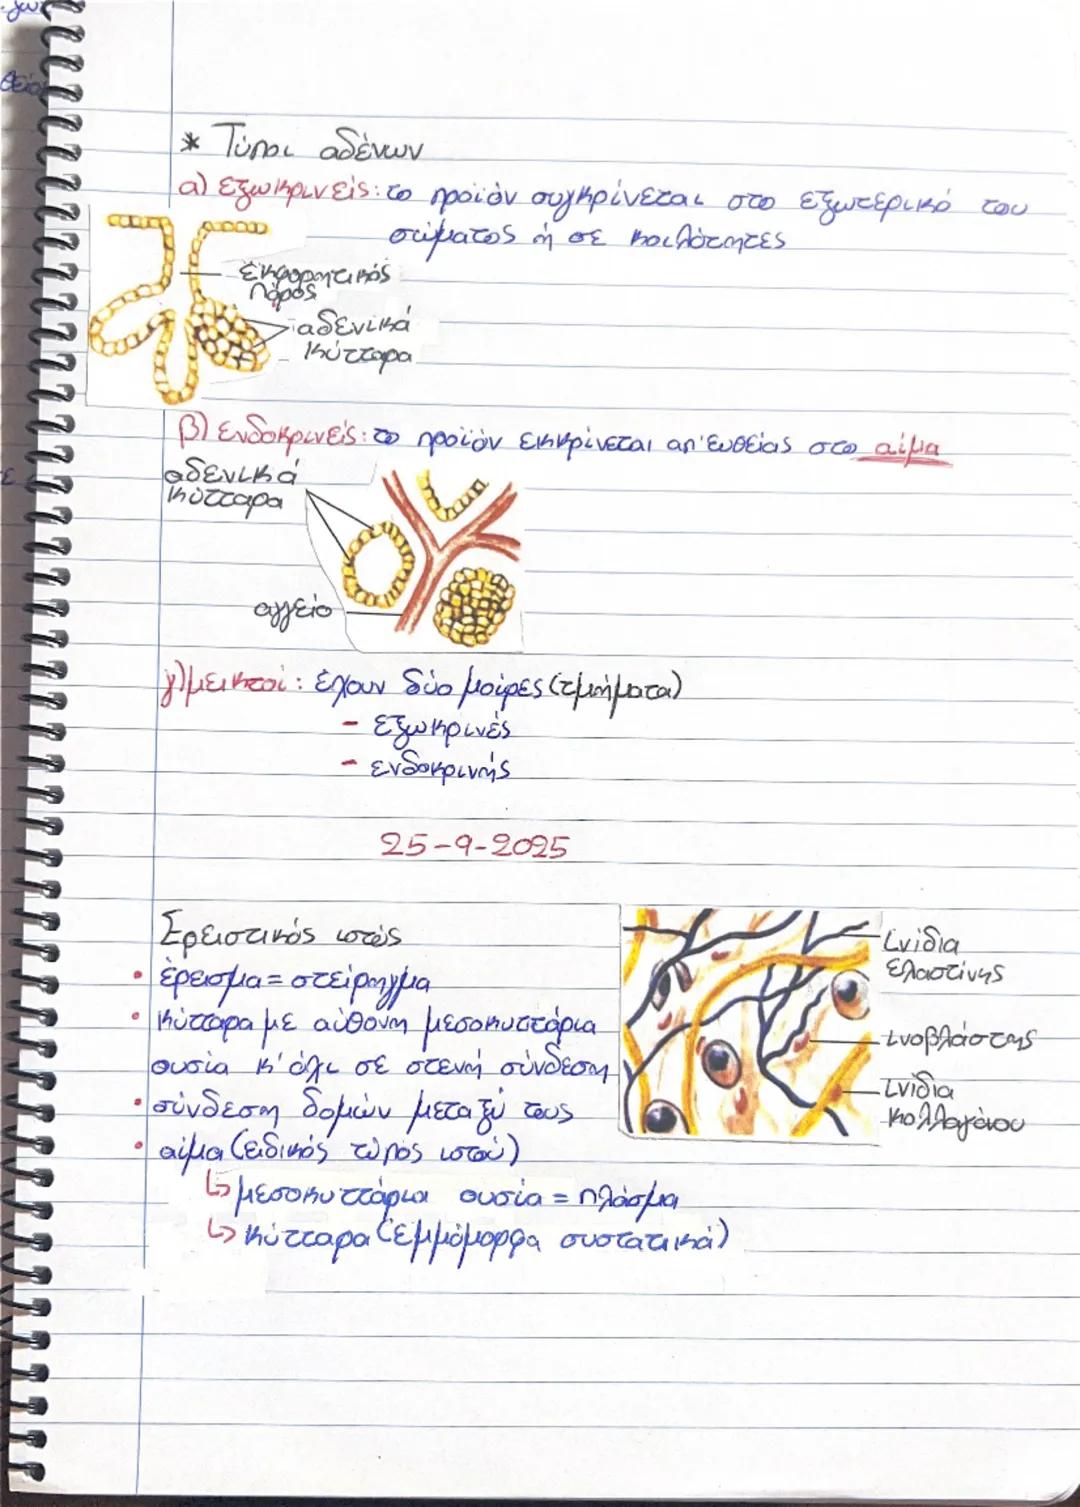 * Τύποι αδένων
α) εξωκρινείς: το προϊόν συγκρίνεται στο εξωτερικό του
σώματος ή σε κοιλότητες
εκφορητικός
πόρος
αδενικά
κύτταρα
β) ενδοκρινείς: το προϊόν εκκρίνεται απ'ευθείας στο αίμα
αδενικά
κύτταρα
αγγείο
γ) μεικτοί: έχουν δύο μοίρες (τμήματα)
- εξωκρινές
- ενδοκρινής
25-9-2025
Ερειστικός ιστός
• έρεισμα = στείρηγμα
• κύτταρα με αύθονη μεσοκυττάρια
ουσία κ' όχι σε στενή σύνδεση
• σύνδεση δομών μεταξύ τους
• αίμα (ειδικός τύπος ιστού)
↳ μεσοκυττάρια ουσία = πλάσμα
↳ κύτταρα (έμμόμορφα συστατικά)
ινίδια
ελαστίνης
ινοβλάστης
ινίδια
κολλαγόνου